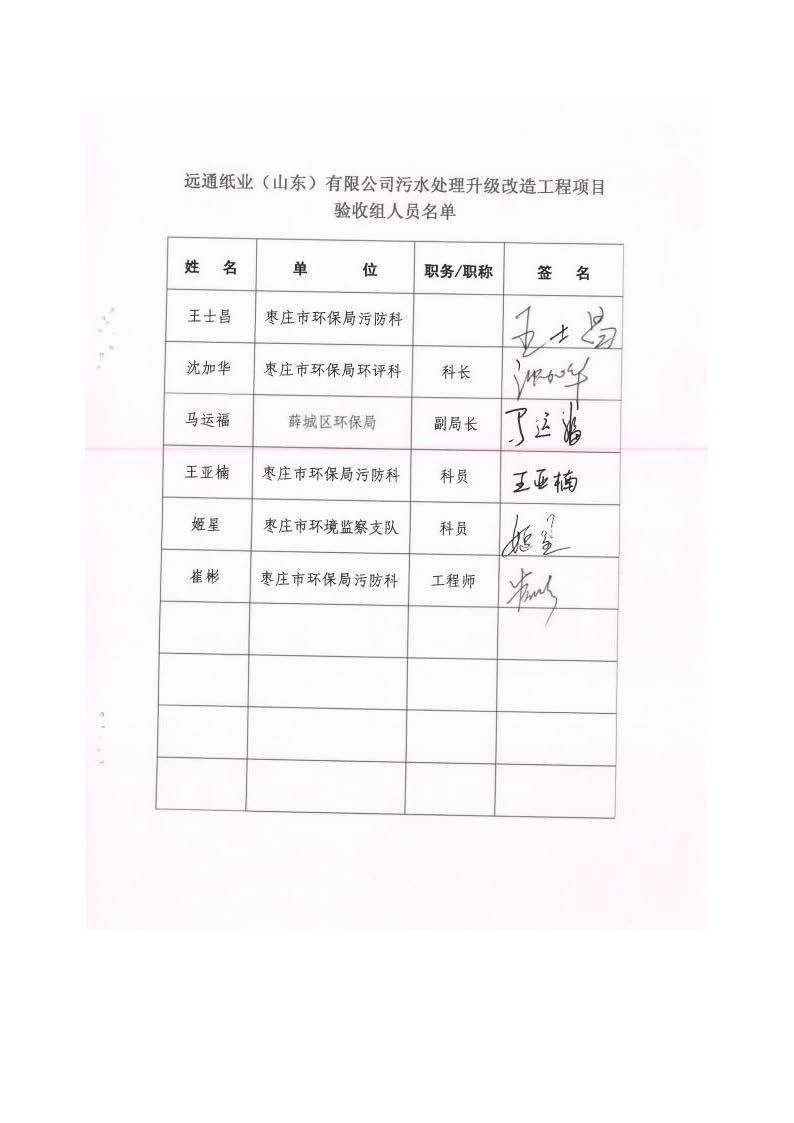 远通纸业（山东）有限公司污水处理升级改造工程项目
验收组人员名单
姓 名 单 位 职务/职称 签 名
王士昌 枣庄市环保局污防科 王士昌
沈加华 枣庄市环保局环评科 科长 沈加华
马运福 薛城区环保局 副局长 马运福
王亚楠 枣庄市环保局污防科 科员 王亚楠
姬星 枣庄市环境监察支队 科员 姬星
崔彬 枣庄市环保局污防科 工程师 崔彬